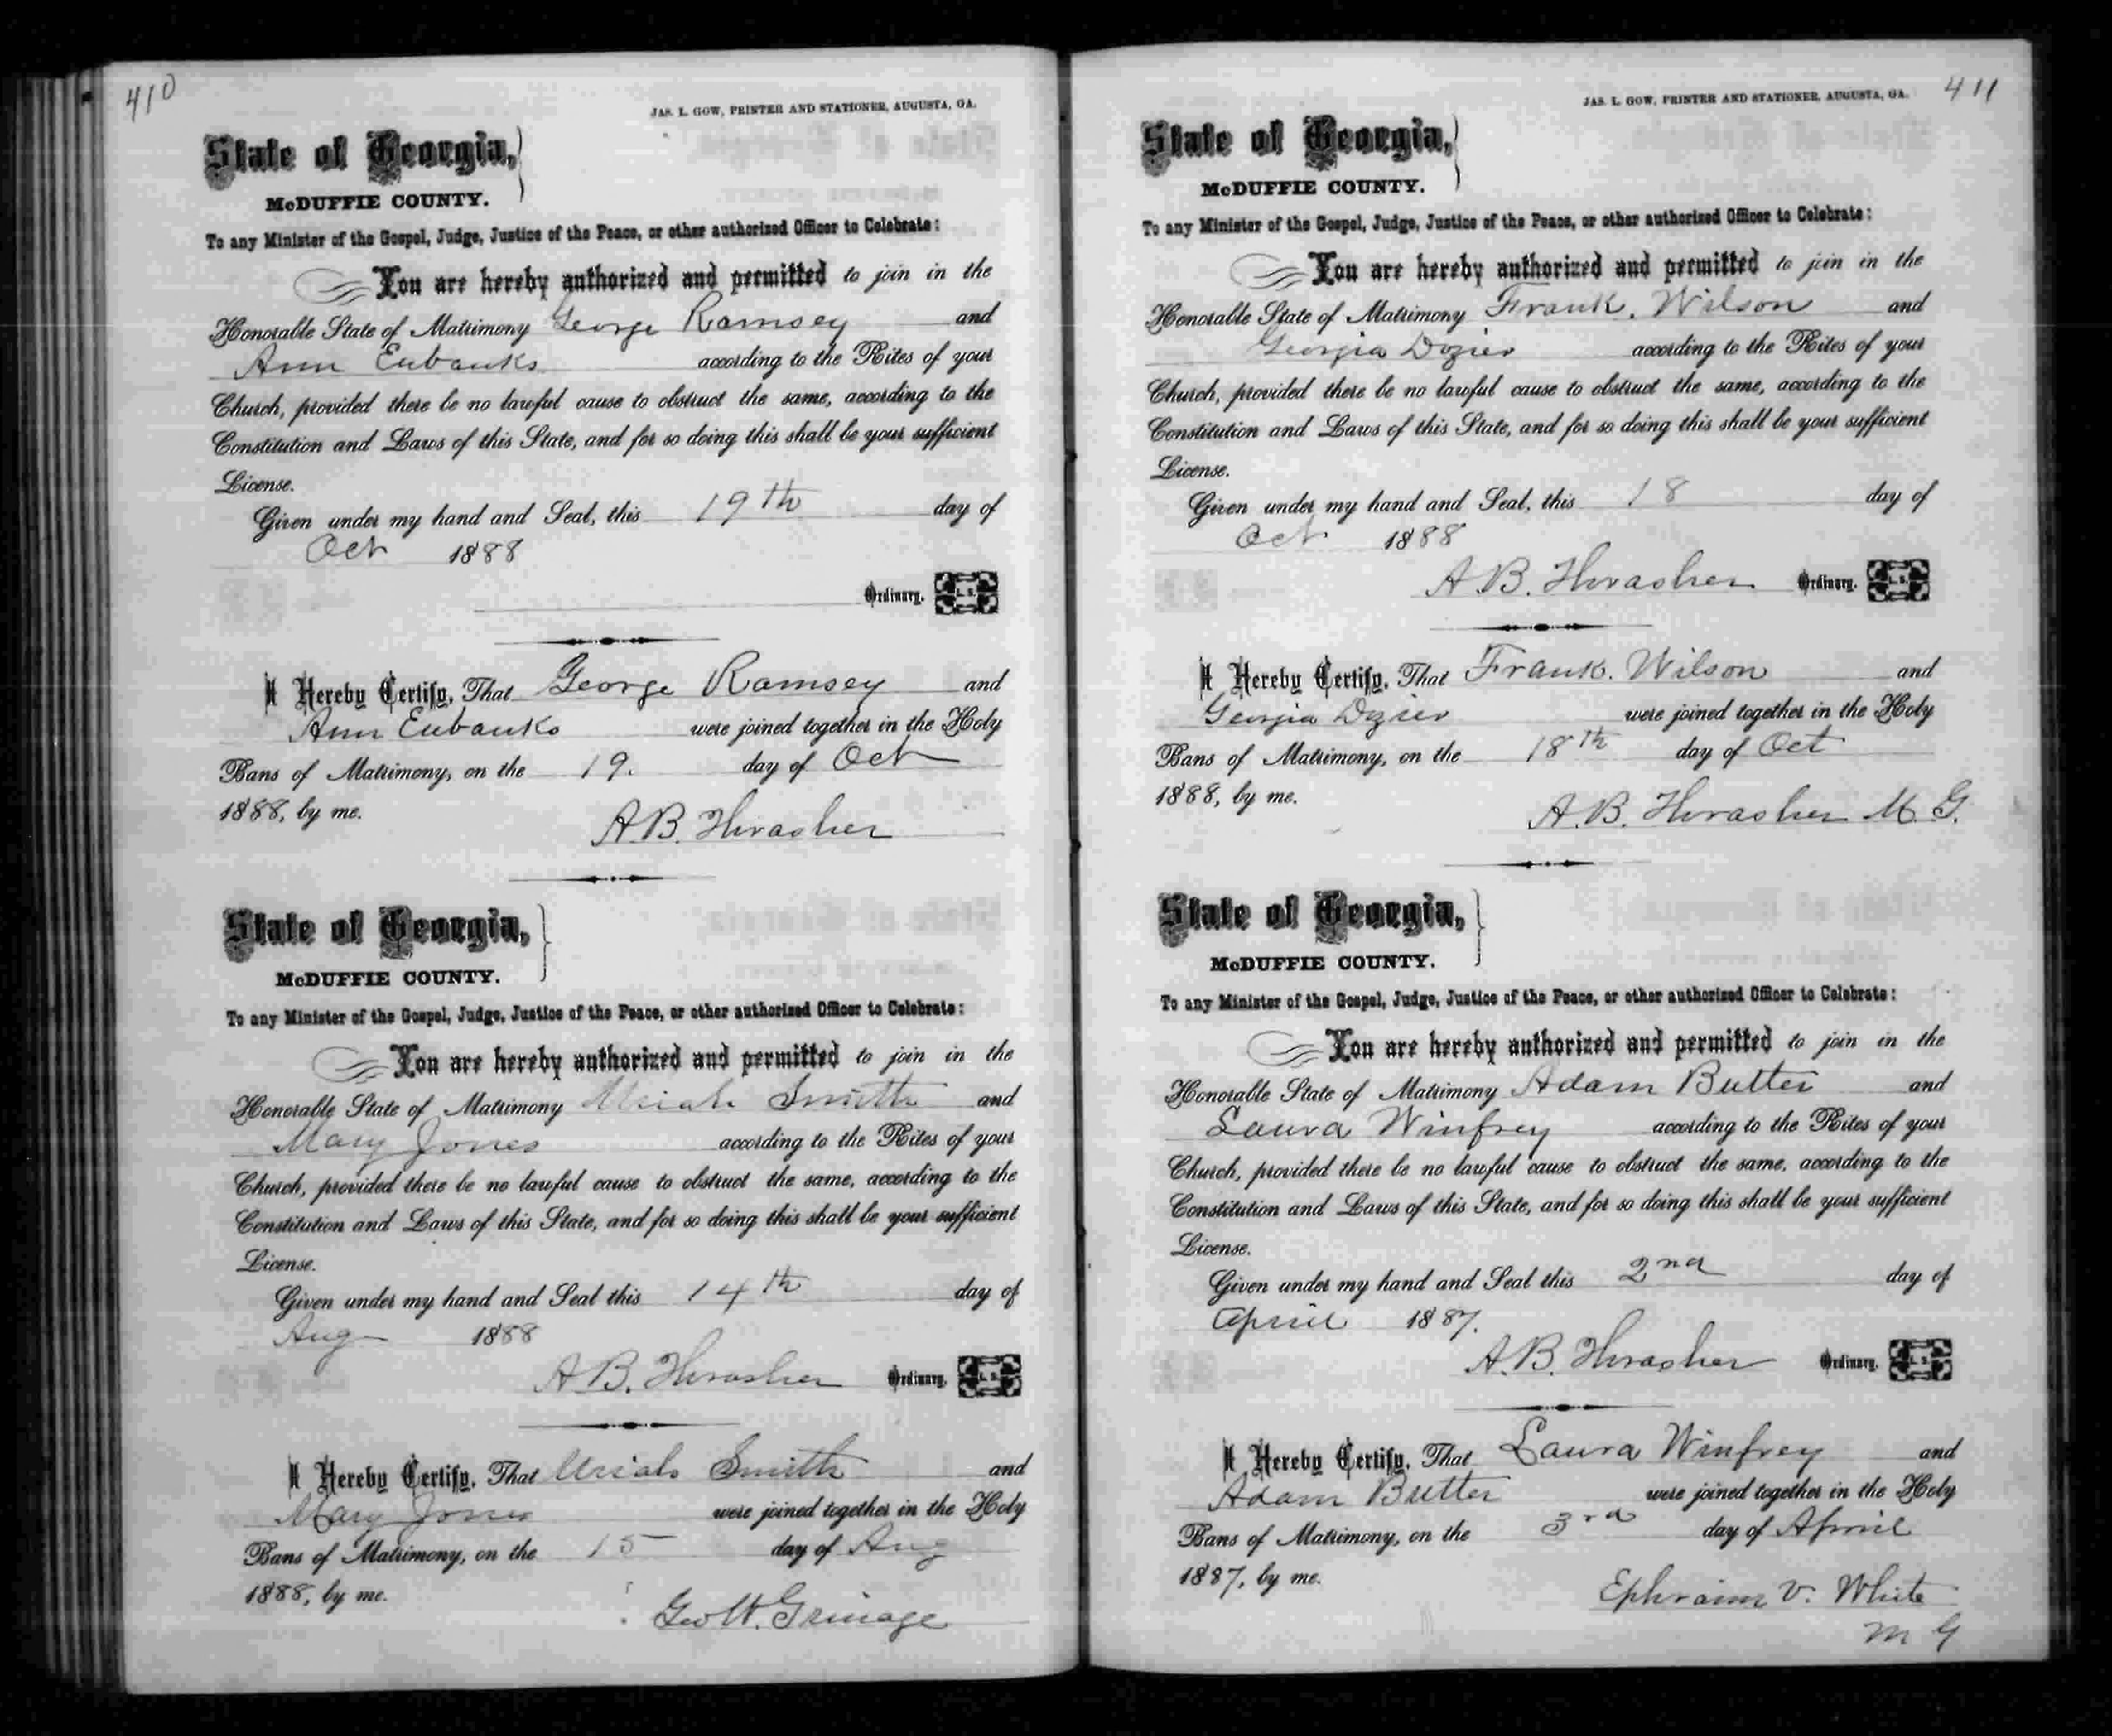 410
JAS. L. GOW, PRINTER AND STATIONER, AUGUSTA, GA.
State of Georgia,
McDUFFIE COUNTY.
To any Minister of the Gospel, Judge, Justice of the Peace, or other authorized Officer to Celebrate:
You are hereby authorized and permitted to join in the
Honorable State of Matrimony George Ramsey and
Ann Eubanks according to the Rites of your
Church, provided there be no lawful cause to obstruct the same, according to the
Constitution and Laws of this State, and for so doing this shall be your sufficient
License.
Given under my hand and Seal, this 19th day of
Oct 1888
Ordinary. L. S.
I Hereby Certify, That George Ramsey and
Ann Eubanks were joined together in the Holy
Bans of Matrimony, on the 19. day of Oct
1888, by me.
A.B. Thrasher
State of Georgia,
McDUFFIE COUNTY.
To any Minister of the Gospel, Judge, Justice of the Peace, or other authorized Officer to Celebrate:
You are hereby authorized and permitted to join in the
Honorable State of Matrimony Uriah Smith and
Mary Jones according to the Rites of your
Church, provided there be no lawful cause to obstruct the same, according to the
Constitution and Laws of this State, and for so doing this shall be your sufficient
License.
Given under my hand and Seal this 14th day of
Aug 1888
A.B. Thrasher Ordinary. L. S.
I Hereby Certify, That Uriah Smith and
Mary Jones were joined together in the Holy
Bans of Matrimony, on the 15 day of Aug
1888, by me.
Geo W. Grinage
JAS. L. GOW, PRINTER AND STATIONER, AUGUSTA, GA. 411
State of Georgia,
McDUFFIE COUNTY.
To any Minister of the Gospel, Judge, Justice of the Peace, or other authorized Officer to Celebrate:
You are hereby authorized and permitted to join in the
Honorable State of Matrimony Frank. Wilson and
Georgia Dozier according to the Rites of your
Church, provided there be no lawful cause to obstruct the same, according to the
Constitution and Laws of this State, and for so doing this shall be your sufficient
License.
Given under my hand and Seal, this 18 day of
Oct. 1888
A.B. Thrasher Ordinary. L. S.
I Hereby Certify, That Frank. Wilson and
Georgia Dozier were joined together in the Holy
Bans of Matrimony, on the 18th day of Oct
1888, by me.
A.B. Thrasher M.G.
State of Georgia,
McDUFFIE COUNTY.
To any Minister of the Gospel, Judge, Justice of the Peace, or other authorized Officer to Celebrate:
You are hereby authorized and permitted to join in the
Honorable State of Matrimony Adam Butler and
Laura Winfrey according to the Rites of your
Church, provided there be no lawful cause to obstruct the same, according to the
Constitution and Laws of this State, and for so doing this shall be your sufficient
License.
Given under my hand and Seal this 2nd day of
April 1887.
A.B. Thrasher Ordinary. L. S.
I Hereby Certify, That Laura Winfrey and
Adam Butler were joined together in the Holy
Bans of Matrimony, on the 3rd day of April
1887, by me.
Ephraim V. White
M G